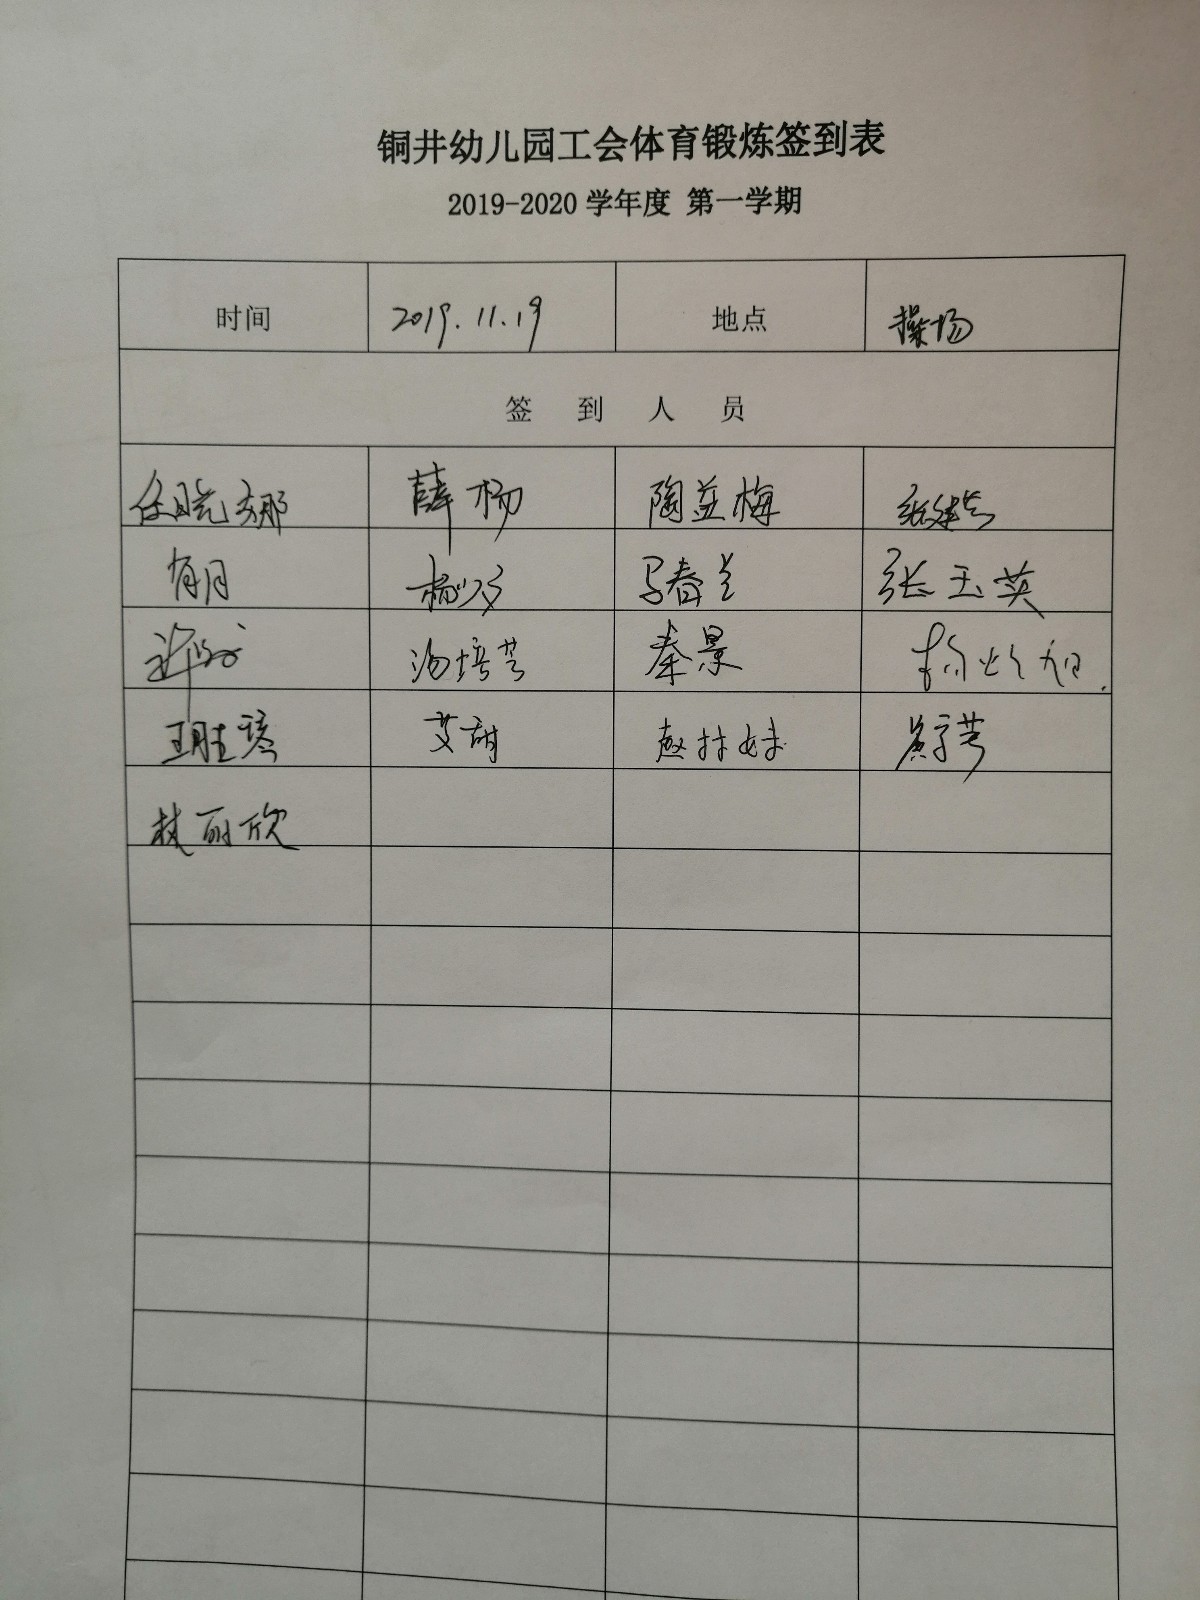 铜井幼儿园工会体育锻炼签到表
2019-2020 学年度 第一学期
时间 2019.11.19 地点 操场
签 到 人 员
任晓娜 薛杨 陶益梅
有月 马春兰 张玉英
汤培芳 秦景
王胜琴 艾甜 赵林妹
林丽欣